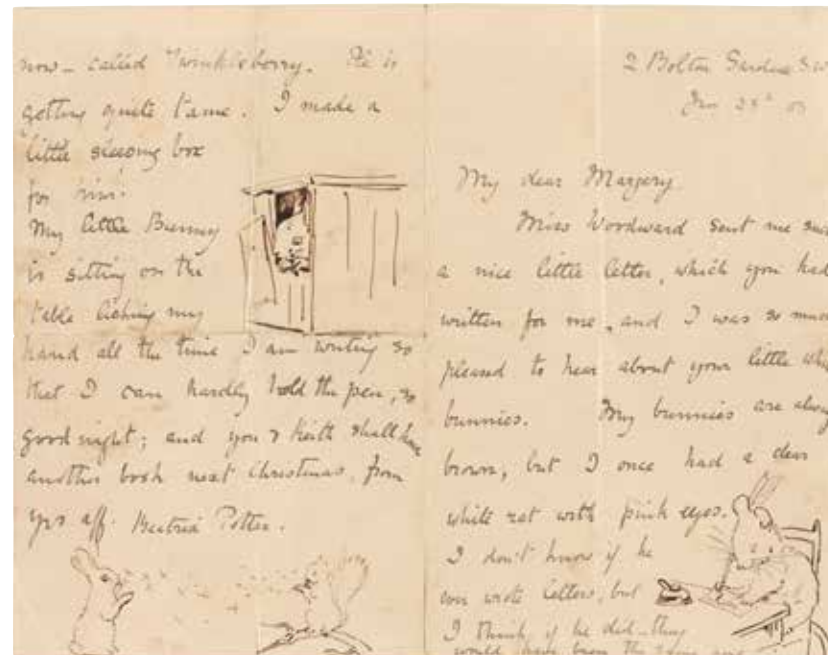 now - called Twinkleberry. He is
getting quite tame. I made a
little sleeping box
for him.
My little Bunny
is sitting on the
table licking my
hand all the time I am writing so
that I can hardly hold the pen, so
good night; and you & Keith shall have
another book next Christmas, from
yrs aff. Beatrix Potter.
2 Bolton Gardens S.W
Jan 28th 03
My dear Margery
Miss Woodward sent me suc
a nice little letter, which you had
written for me, and I was so muc
pleased to hear about your little whi
bunnies. My bunnies are alway
brown, but I once had a dear
white rat with pink eyes.
I don't know if he
ever wrote letters, but
I think if he did - they
would have been the same